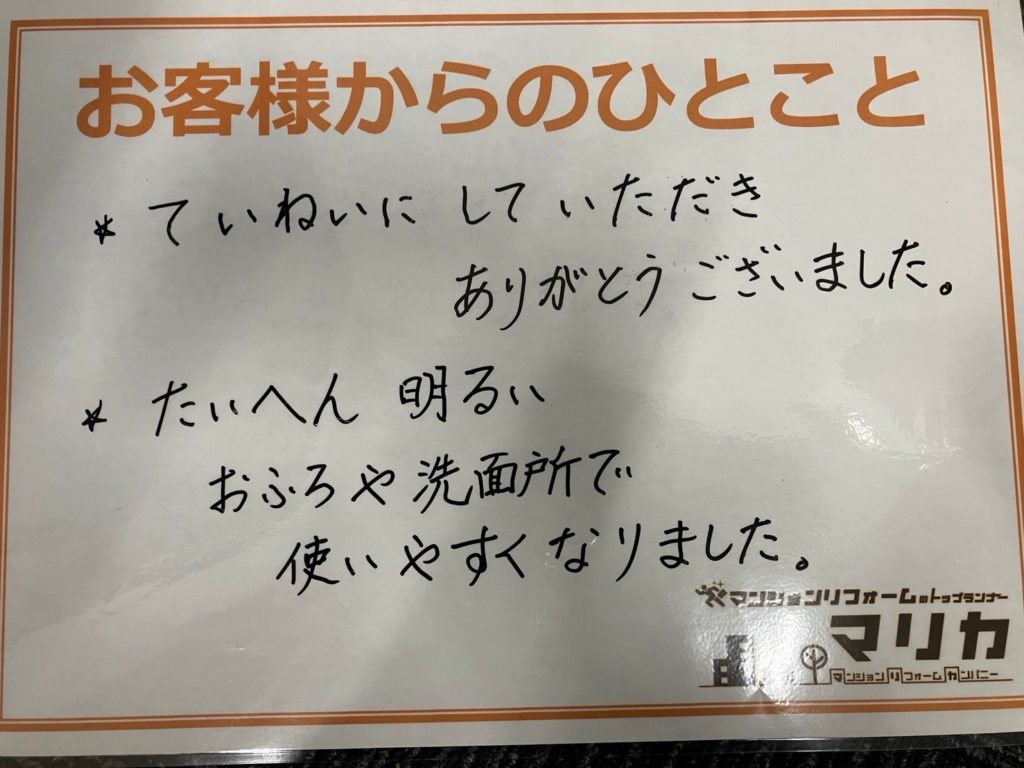 お客様からのひとこと
* ていねいに していただき
ありがとう ございました。
* たいへん 明るい
おふろや洗面所で
使いやすくなりました。
マンションリフォームのトップランナー
マリカ
マンションリフォームカンパニー